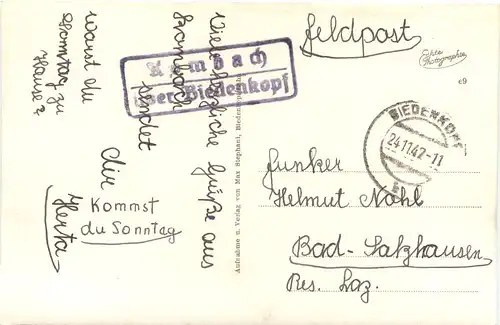 Viele herzliche Grüße aus
Kombach
sendet
dir
Herta
Warst du
Sonntag zu
Hause?
Kommst
du Sonntag
Kombach
über Biedenkopf
Aufnahme u. Verlag von Max Stephani, Biedenkopf
Feldpost
Echte
Photographie
e9
BIEDENKOPF
24.11.42-11
Funker
Helmut Nahl
Bad-Salzhausen
Res. Laz.